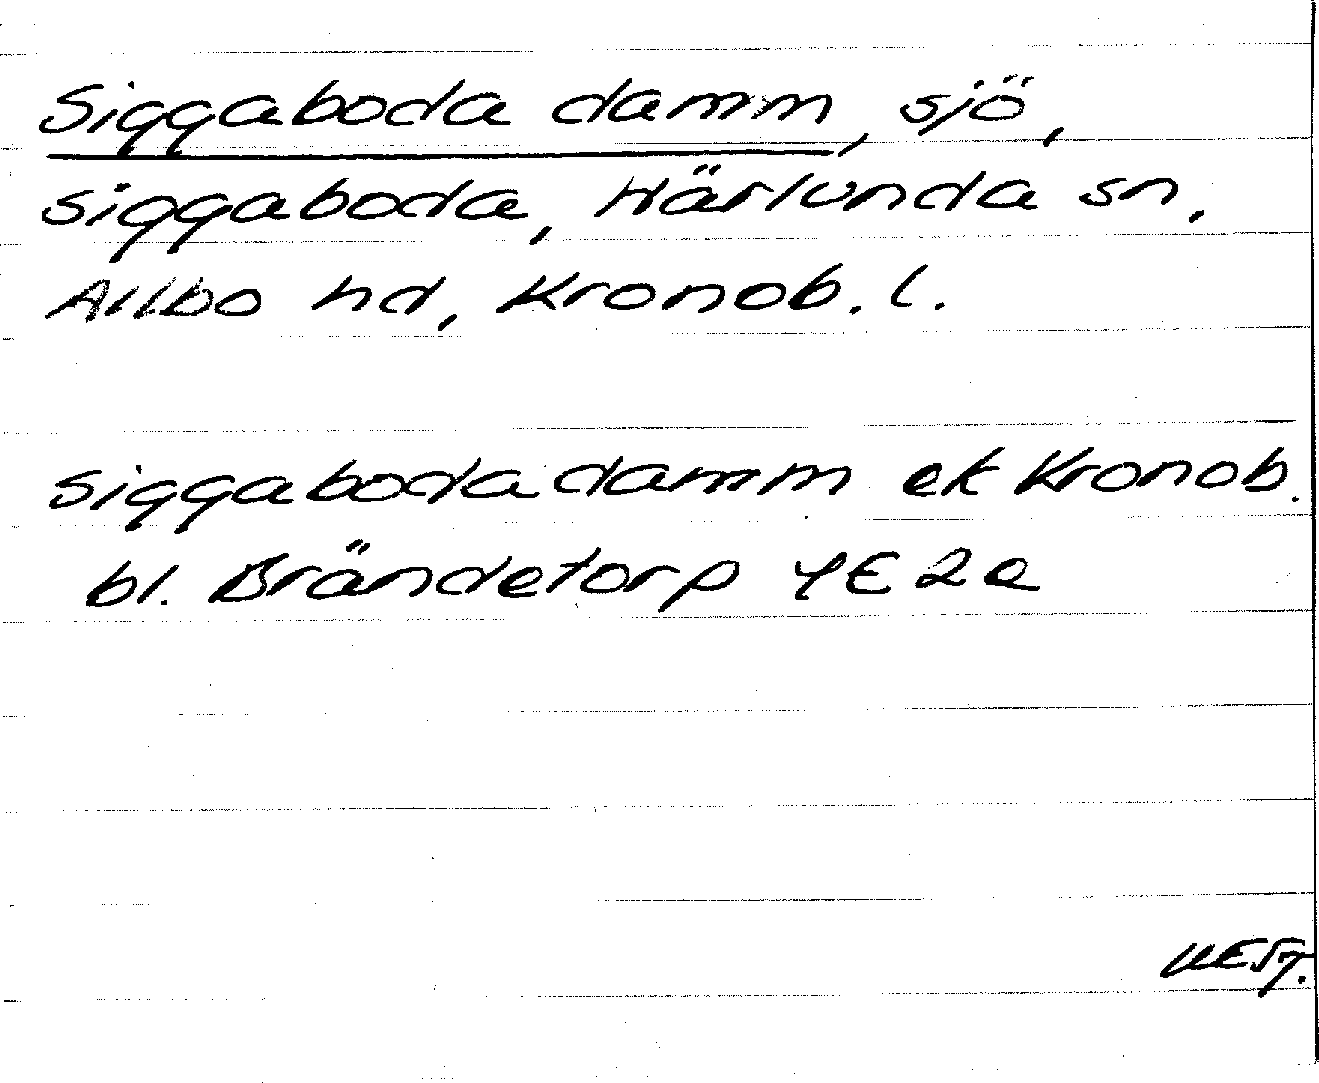 Siggaboda damm, sjö,
Siggaboda, Härlunda sn.
Allbo hd, Kronob. l.
Siggaboda damm ek Kronob.
bl. Brändetorp 4E2e